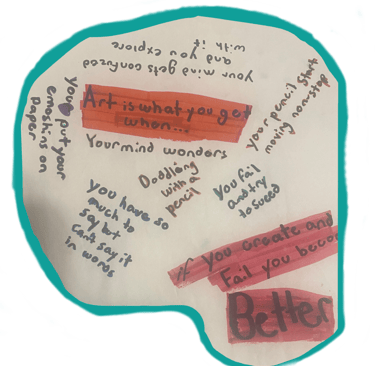 Art is what you get
when...
Your mind wonders
your mind gets confuzed
and you explore
with it
your pencil start
moving non-stop
you put your
emoshins on
paper
Doddling
with a
pencil
you fail
and try
to suceed
you have so
much to
say but
can't say it
in words
if you create and
Fail you become
Better